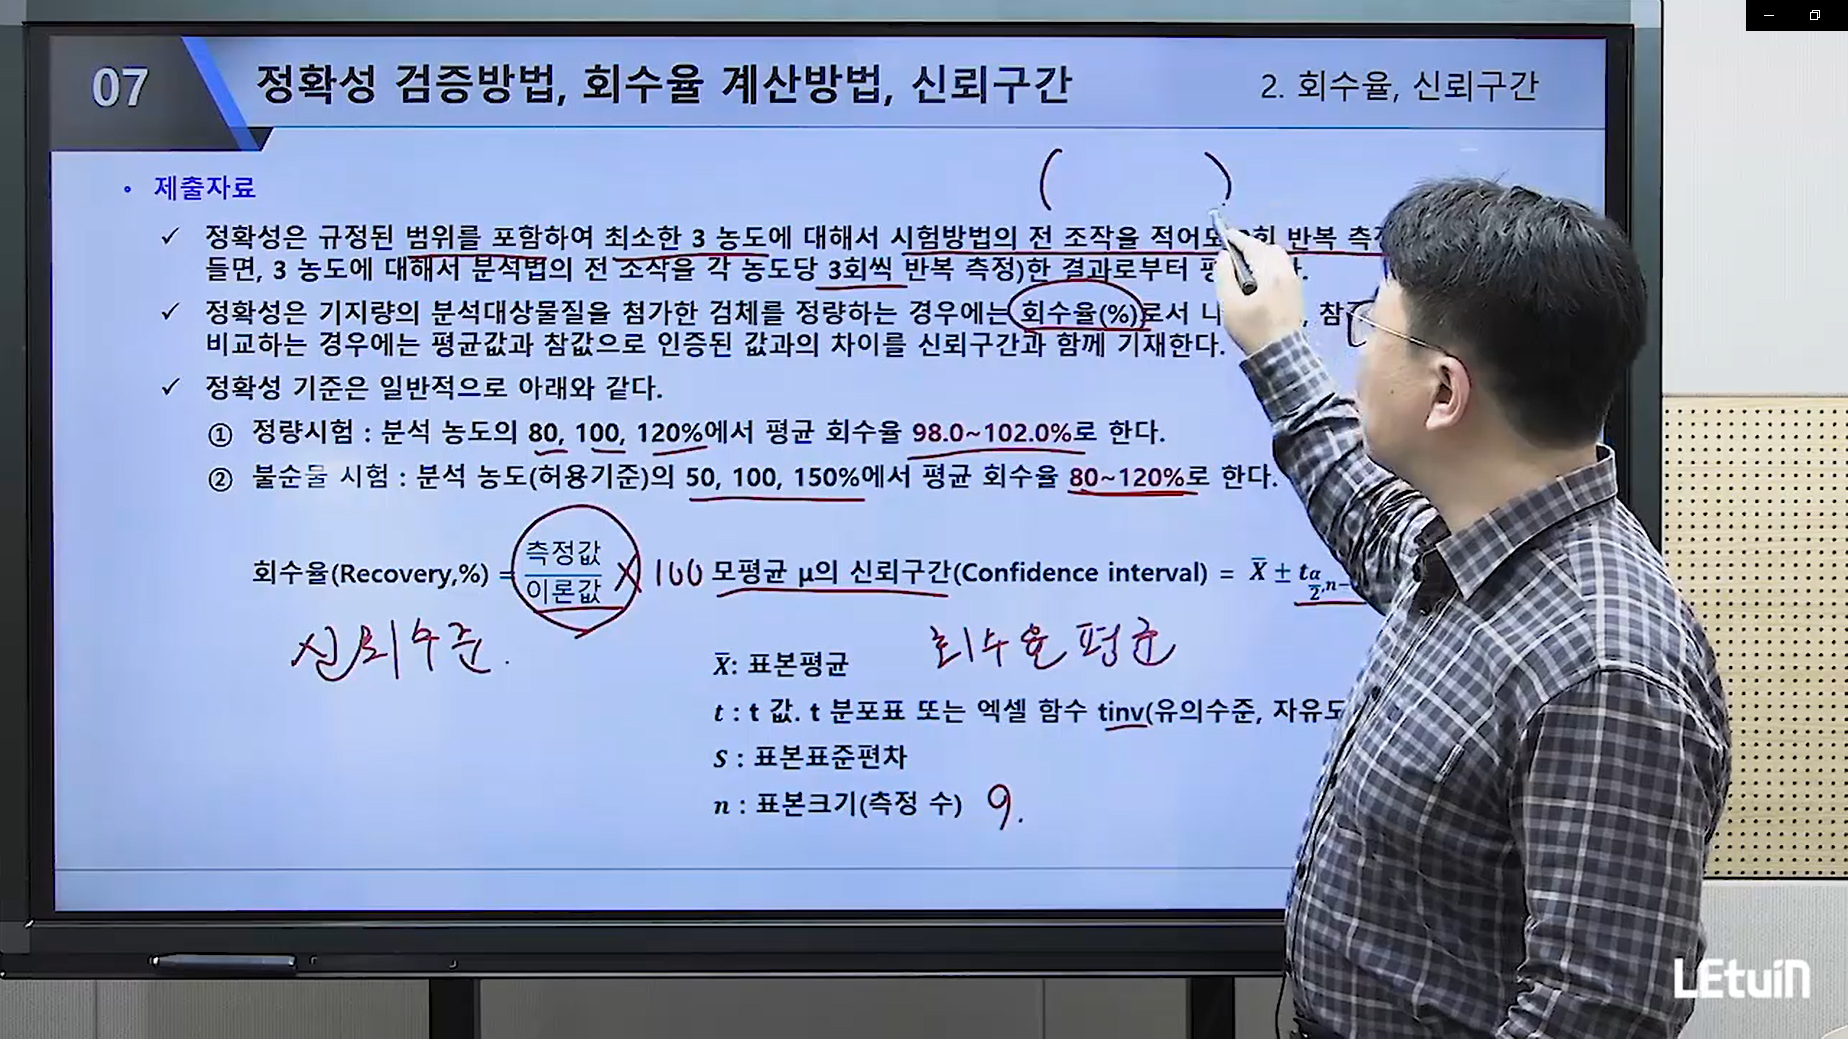 07
정확성 검증방법, 회수율 계산방법, 신뢰구간
2. 회수율, 신뢰구간
• 제출자료
( )
✓ 정확성은 규정된 범위를 포함하여 최소한 3 농도에 대해서 시험방법의 전 조작을 적어도 반복 측
들면, 3 농도에 대해서 분석법의 전 조작을 각 농도당 3회씩 반복 측정)한 결과로부터
✓ 정확성은 기지량의 분석대상물질을 첨가한 검체를 정량하는 경우에는 회수율(%)로서
비교하는 경우에는 평균값과 참값으로 인증된 값과의 차이를 신뢰구간과 함께 기재한다.
✓ 정확성 기준은 일반적으로 아래와 같다.
① 정량시험 : 분석 농도의 80, 100, 120%에서 평균 회수율 98.0~102.0%로 한다.
② 불순물 시험 : 분석 농도(허용기준)의 50, 100, 150%에서 평균 회수율 80~120%로 한다.
회수율(Recovery,%) = 측정값/이론값 X 100 모평균 μ의 신뢰구간(Confidence interval) = X̄ ± t α/2,n-
신뢰수준.
X̄: 표본평균 회수율 평균
t : t 값. t 분포표 또는 엑셀 함수 tinv(유의수준, 자유도
S : 표본표준편차
n : 표본크기(측정 수) 9.
LEtuiN